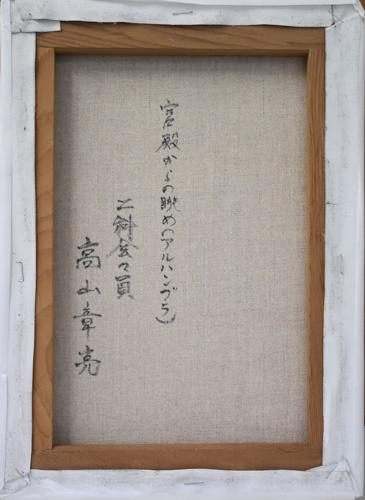 宮殿からの眺め(アルハンブラ)
二科会々員
高山章亮